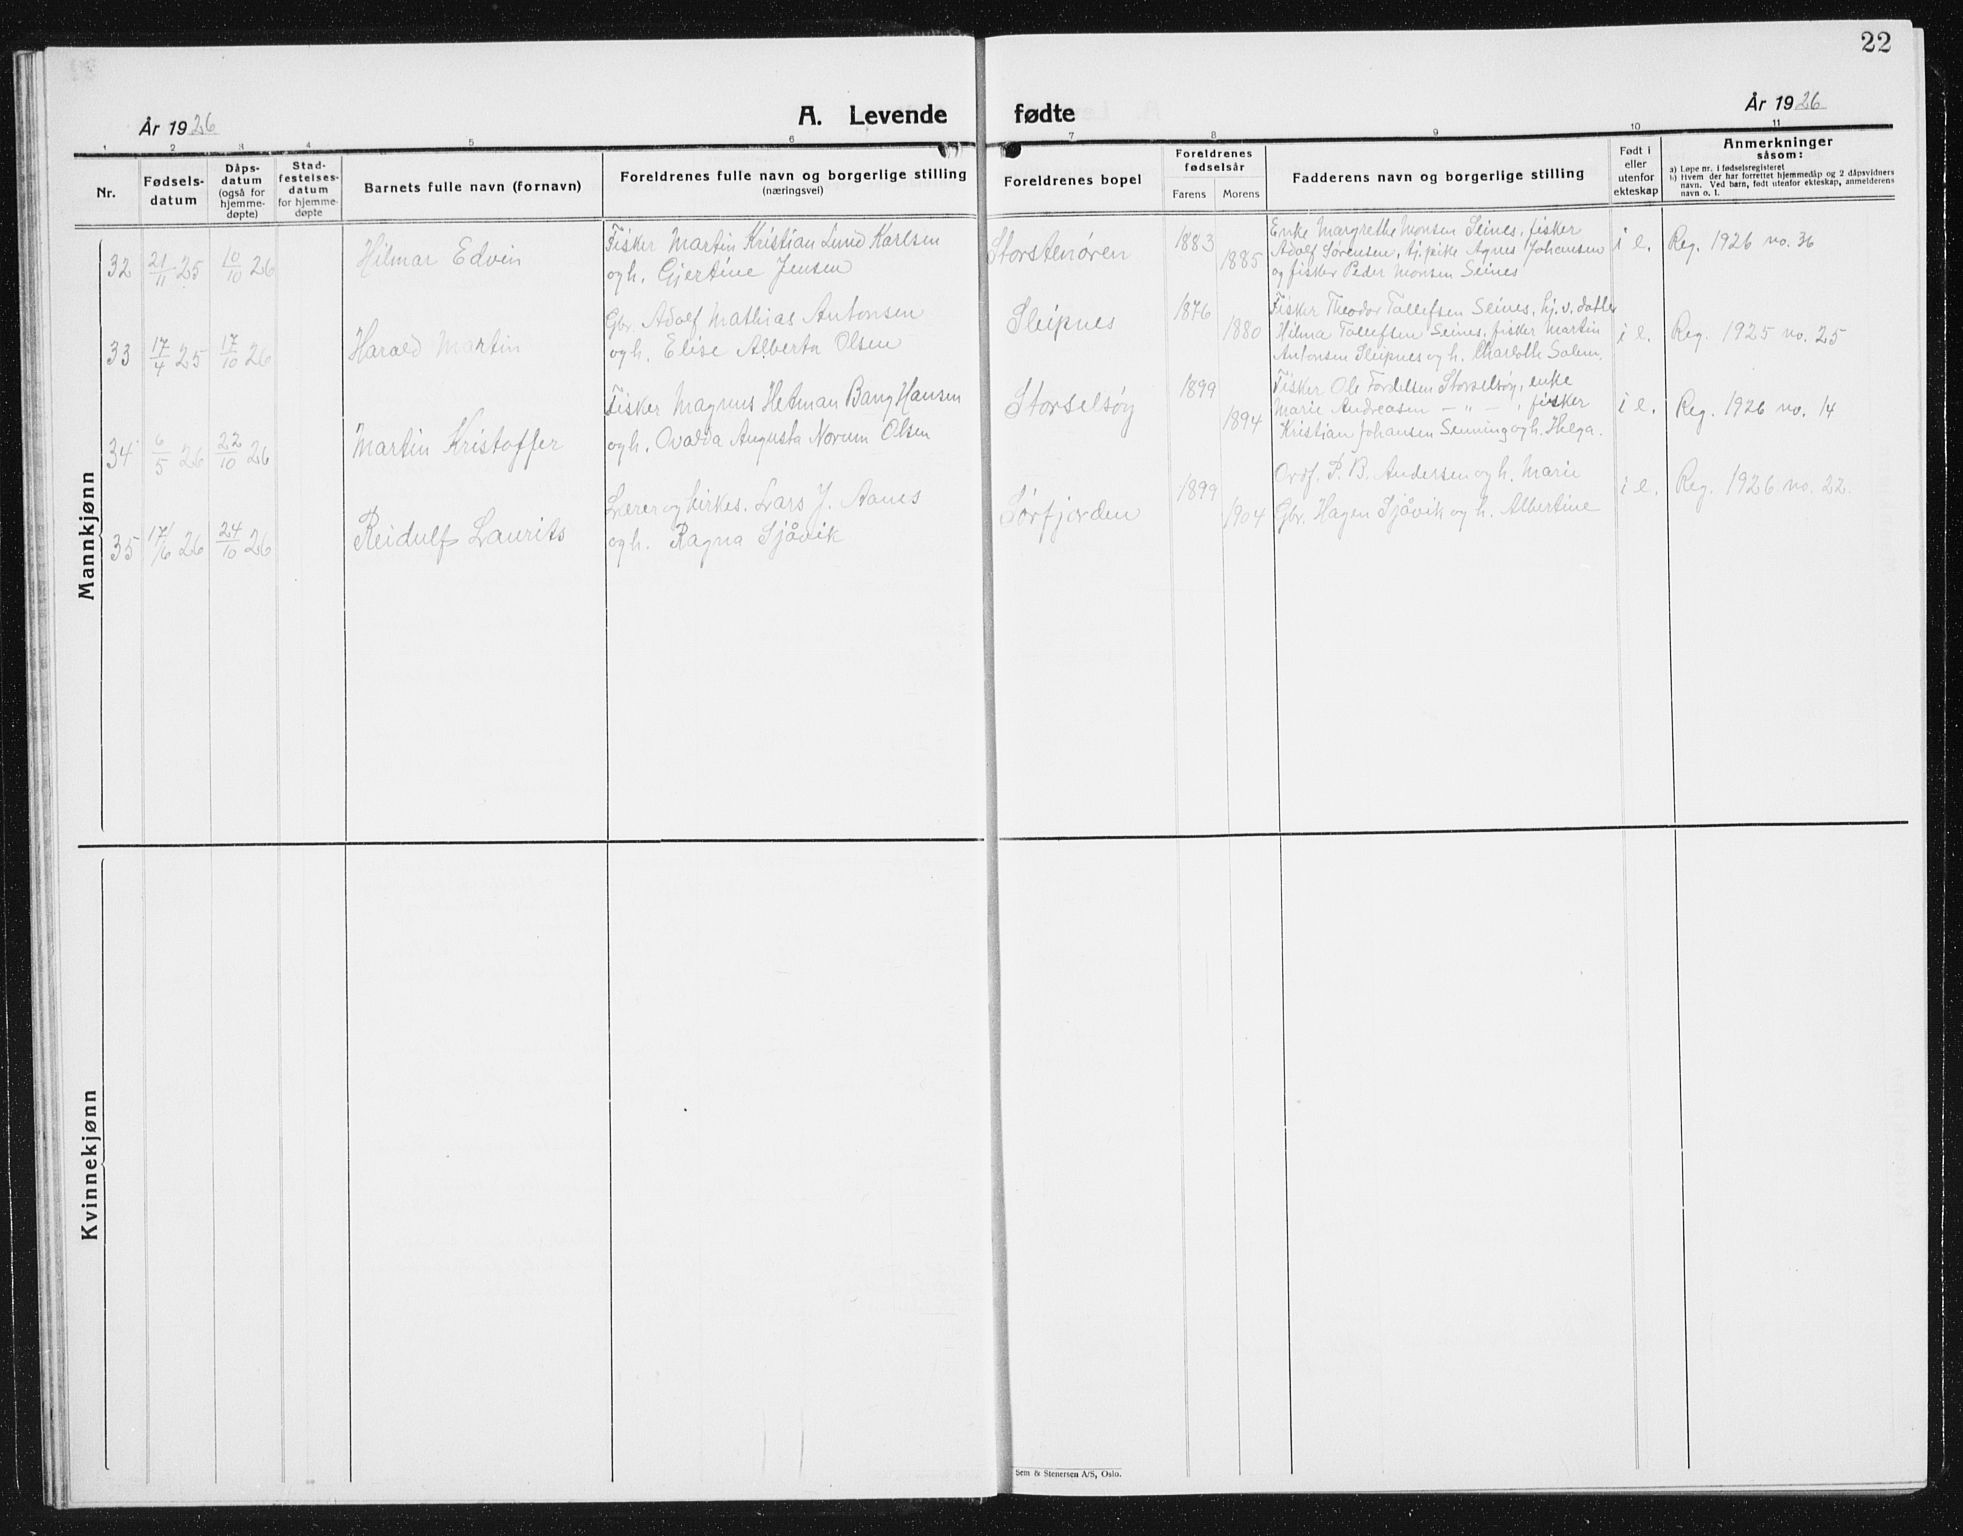 22
År 1926
A. Levende fødte
År 1926
1 2 3 4 5 6 7 8 9 10 11
Nr.
Fødsels-
datum
Dåps-
datum
(også for
hjemme-
døpte)
Stad-
festelses-
datum
for hjemme-
døpte
Barnets fulle navn (fornavn)
Foreldrenes fulle navn og borgerlige stilling
(næringsvei)
Foreldrenes bopel
Foreldrenes
fødselsår
Farens Morens
Fadderens navn og borgerlige stilling
Født i
eller
utenfor
ekteskap
Anmerkninger
såsom:
a) Løpe nr. i fødselsregisteret
b) Hvem der har forrettet hjemmedåp og 2 dåpsvidners
navn. Ved barn, født utenfor ekteskap, anmelderens
navn o. l.
Mannkjønn
32 21/11 25 10/10 26 Hilmar Edvin
Fisker Martin Kristian Lund Karlsen
og h. Gjertine Jensen
Storstenøren 1883 1885
Enke Margrethe Monsen Seines, fisker
Adolf Sørensen, tj.pike Agnes Johansen
og fisker Peder Monsen Seines
i e. Reg. 1926 no. 36
33 17/4 25 17/10 26 Harald Martin
Gbr. Adolf Mathias Antonsen
og h. Elise Alberta Olsen
Sleipnes 1876 1880
Fisker Theodor Tollefsen Seines, hj. v. datter
Hilma Tollefsen Seines, fisker Martin
Antonsen Sleipnes og h. Charlotte Salem.
i e. Reg. 1925 no. 25
34 6/5 26 22/10 26 Martin Kristoffer
Fisker Magnus Hetman Bang Hansen
og h. Ovalda Augusta Norum Olsen
Storselsøy 1899 1894
Fisker Ole Fordelsen Storselsøy, enke
Marie Andreasen — " — , fisker
Kristian Johansen Senning og h. Helga.
i e. Reg. 1926 no. 14
35 17/6 26 24/10 26 Reidulf Laurits
Lærer og kirkes. Lars J. Aanes
og h. Ragna Sjåvik
Sørfjorden 1899 1904
Ordf. P. B. Andersen og h. Marie
Gbr. Hagen Sjåvik og h. Albertine
i e. Reg. 1926 no. 22.
Kvinnekjønn
Sem & Stenersen A/S, Oslo.